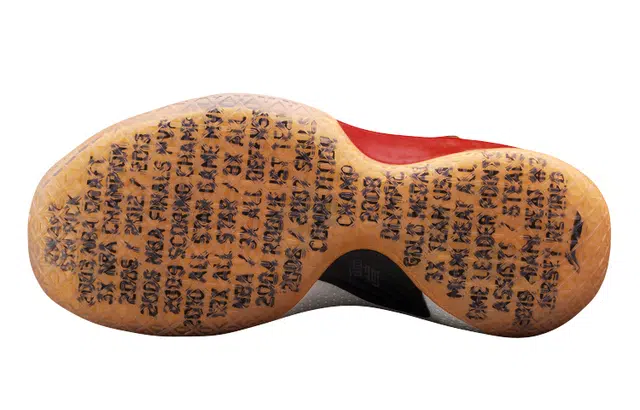 5TH PICK
2003 NBA DRAFT
3X NBA CHAMPION
2006 / 2012 / 2013
2006 NBA FINALS MVP
2009 SCORING CHAMP
2010 ALL STAR GAME MVP
13X ALL STAR / 8X ALL
NBA / 3X ALL DEFENSE
2004 ROOKIE 1ST TEAM
2006 / 2007 SKILLS
COMPETITION
CHAMP
2008
OLYMPIC
GOLD MEDAL
3X TEAM USA
MIAMI HEAT ALL
TIME LEADER POINTS
ASSIST / STEALS
2019 MIAMI HEAT #3
JERSEY RETIRED